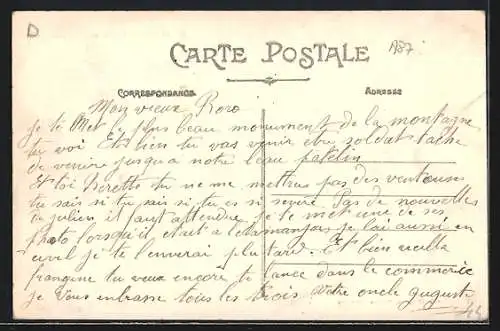 D
A87
CARTE POSTALE
CORRESPONDANCE
ADRESSE
Mon vieux Roro
je te Met le plus beau monument de la montagne
tu voi Et bien tu vas venir etre soldat tache
de venire jusqua notre beau patelin
Et toi tu ne me mettras pas des ventouses
tu sais si tu sais si tu es si sevère Pas de nouvelles
a julien il faut attendre je te met une de ses
photo lorsqu'il était a je l'ai aussi en
civil je te l'enverai plu tard. Et bien vieille
frangine tu veux encore te lance dans le commerce
je vous embrasse tous les trois Votre oncle Auguste